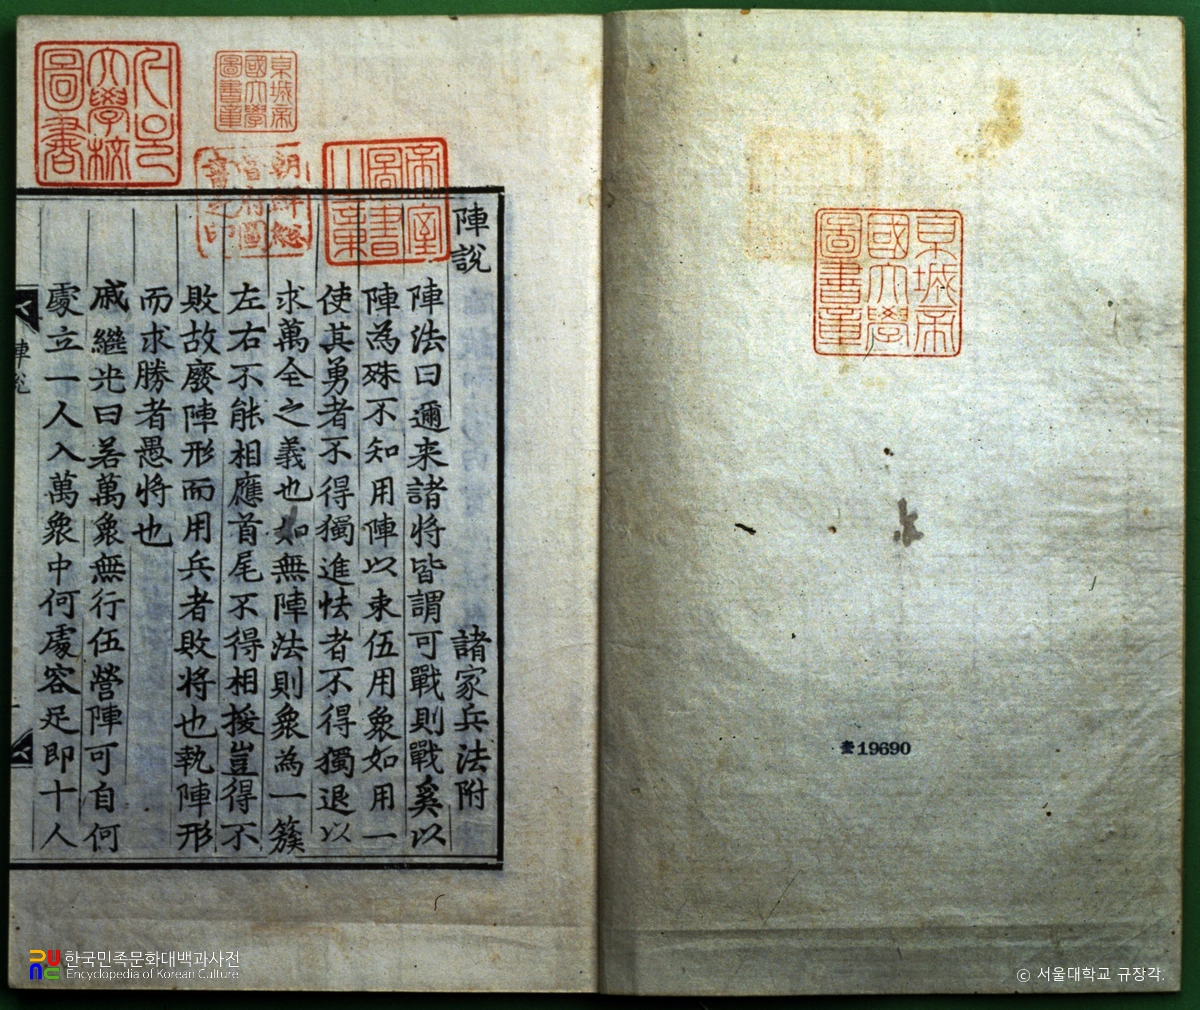 京城帝
國大學
圖書章
奎19690
陣說 諸家兵法附
陣法曰邇来諸将皆謂可戰則戰奚以
陣為殊不知用陣以束伍用衆如用一
使其勇者不得獨進怯者不得獨退以
求萬全之義也如無陣法則衆為一簇
左右不能相應首尾不得相援豈得不
敗故廢陣形而用兵者敗将也執陣形
而求勝者愚将也
戚繼光曰若萬衆無行伍營陣可自何
處立一人入萬衆中何處容足即十人
陣說
帝室
圖書
之章
朝鮮總
督府圖
書之印
京城帝
國大學
圖書章
大學校
圖書
한국민족문화대백과사전
Encyclopedia of Korean Culture
© 서울대학교 규장각.